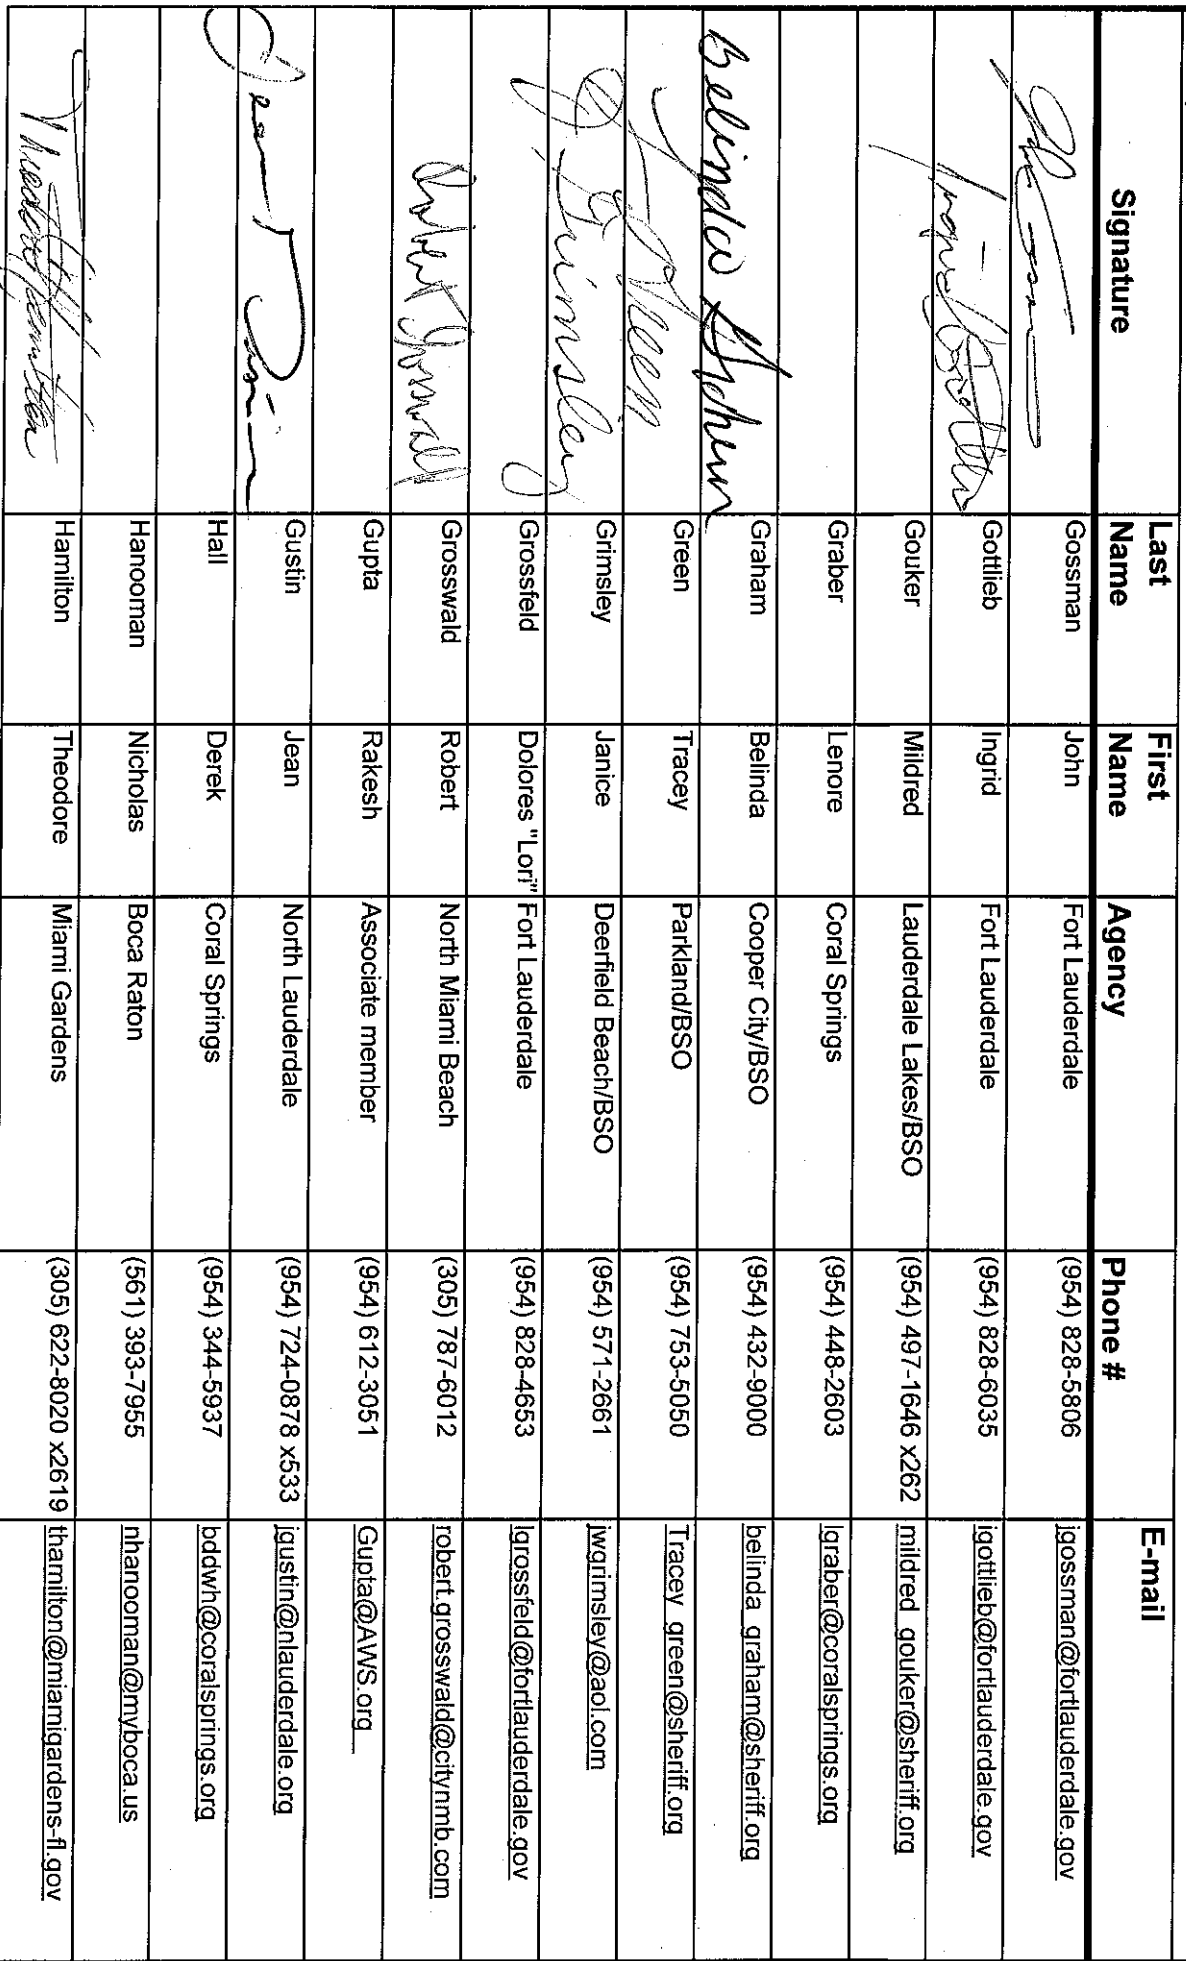 Signature Last Name First Name Agency Phone # E-mail
Gossman John Fort Lauderdale (954) 828-5806 jgossman@fortlauderdale.gov
Gottlieb Ingrid Fort Lauderdale (954) 828-6035 igottlieb@fortlauderdale.gov
Gouker Mildred Lauderdale Lakes/BSO (954) 497-1646 x262 mildred_gouker@sheriff.org
Graber Lenore Coral Springs (954) 448-2603 lgraber@coralsprings.org
Belinda Graham Graham Belinda Cooper City/BSO (954) 432-9000 belinda_graham@sheriff.org
Green Green Tracey Parkland/BSO (954) 753-5050 Tracey_green@sheriff.org
J Grimsley Grimsley Janice Deerfield Beach/BSO (954) 571-2661 jwgrimsley@aol.com
Grossfeld Dolores "Lori" Fort Lauderdale (954) 828-4653 lgrossfeld@fortlauderdale.gov
Robert Grosswald Grosswald Robert North Miami Beach (305) 787-6012 robert.grosswald@citynmb.com
Gupta Rakesh Associate member (954) 612-3051 Gupta@AWS.org
Jean Gustin Gustin Jean North Lauderdale (954) 724-0878 x533 jgustin@nlauderdale.org
Hall Derek Coral Springs (954) 344-5937 bddwh@coralsprings.org
Hanooman Nicholas Boca Raton (561) 393-7955 nhanooman@myboca.us
Theodore Hamilton Hamilton Theodore Miami Gardens (305) 622-8020 x2619 thamilton@miamigardens-fl.gov